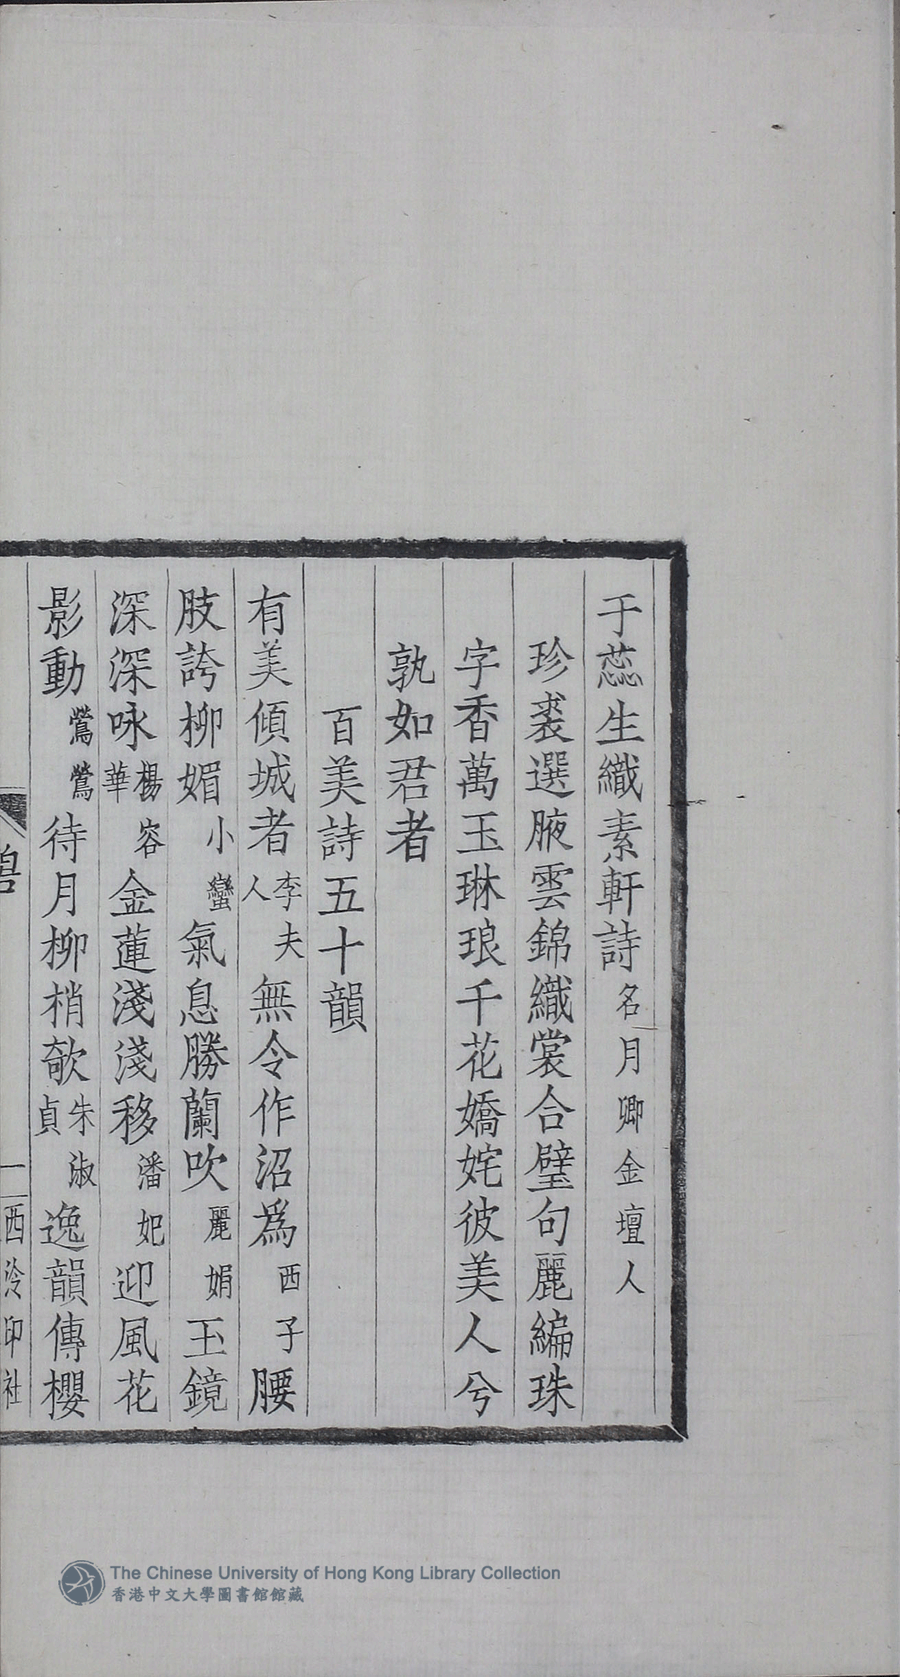 于蕊生織素軒詩名月卿金壇人
珍裘選腋雲錦織裳合璧句麗編珠
字香萬玉琳琅千花嬌姹彼美人兮
孰如君者
百美詩五十韻
有美傾城者李夫人無令作沼爲西子腰
肢誇柳媚小蠻氣息勝蘭吹麗娟玉鏡
深深咏楊容華金蓮淺淺移潘妃迎風花
影動鶯鶯待月柳梢欹朱淑貞逸韻傳櫻
一 西泠印社
The Chinese University of Hong Kong Library Collection
香港中文大學圖書館館藏